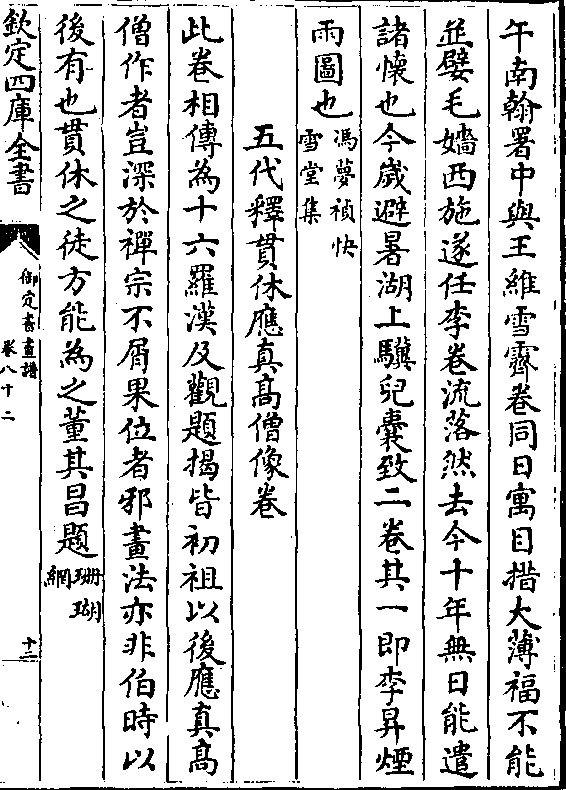 午南翰署中與王維雪霽卷同日寓目措大薄福不能
並嬖毛嬙西施遂任李卷流落然去今十年無日能遣
諸懷也今歲避暑湖上驥兒囊致二卷其一即李昇煙
雨圖也馮夢禎快
雪堂集
五代釋貫休應真高僧像卷
此卷相傳為十六羅漢及觀題揭皆初祖以後應真高
僧作者豈深於禪宗不屑果位者邪畫法亦非伯時以
後有也貫休之徒方能為之董其昌題珊瑚
網
欽定四庫全書
御定書畫譜
卷八十二
十二